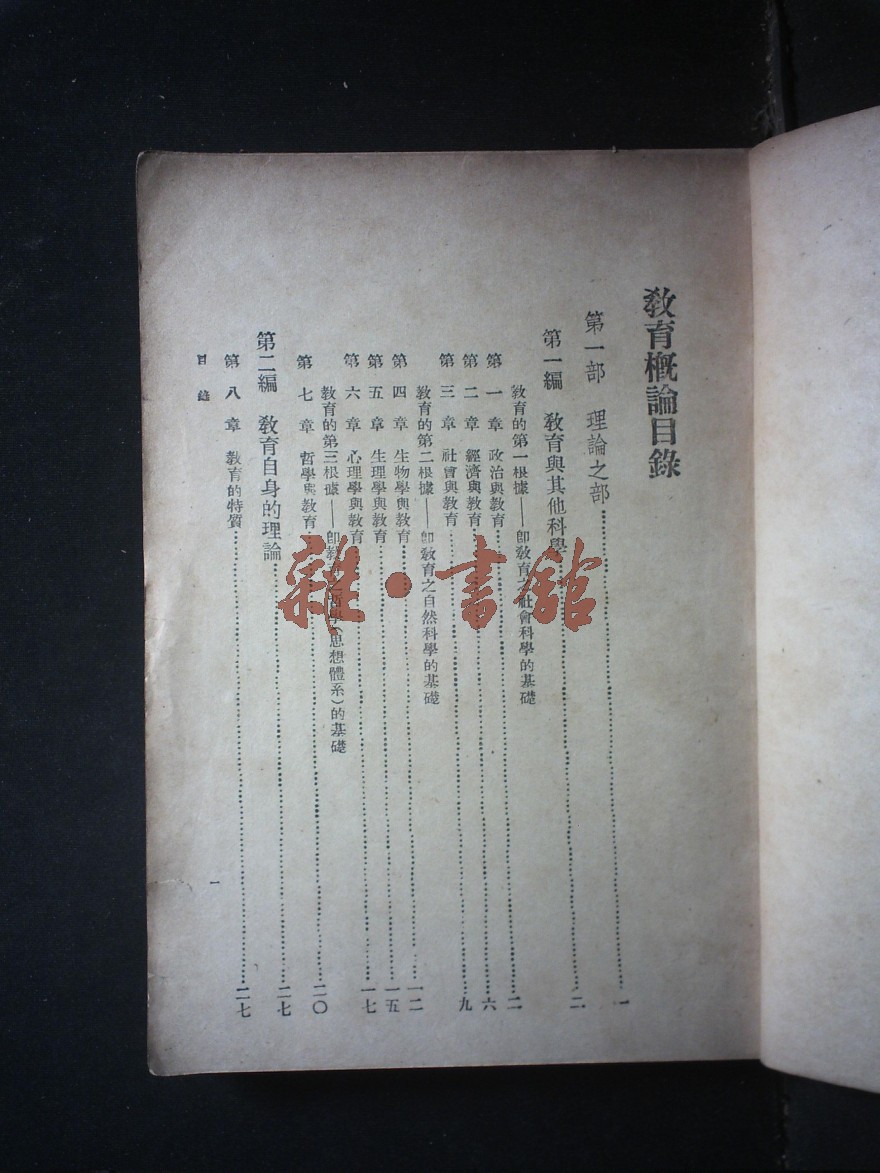 教育概論目錄
第一部 理論之部……一
第一編 教育與其他科學……二
教育的第一根據——卽教育之社會科學的基礎
第一章 政治與教育……二
第二章 經濟與教育……六
第三章 社會與教育……九
教育的第二根據——卽教育之自然科學的基礎
第四章 生物學與教育……一二
第五章 生理學與教育……一五
第六章 心理學與教育……一七
教育的第三根據——卽教育之哲學（思想體系）的基礎
第七章 哲學與教育……二〇
第二編 教育自身的理論……二七
第八章 教育的特質……二七
目錄
一
雜·書館